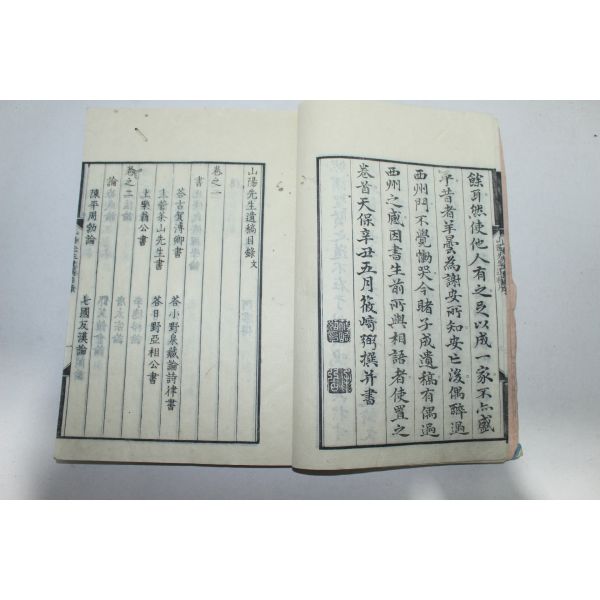 餘耳然使他人有之足以成一家不亦盛
乎昔者羊曇為謝安所知安亡後偶醉過
西州門不覺慟哭今睹子成遺稿有偶過
西州之感因書生前所與相語者使置之
卷首天保辛丑五月筱崎弼撰并書
山陽先生遺稿目錄 文
卷之一
書
答古賀溥卿書 答小野泉藏論詩律書
上菅茶山先生書 答日野亞相公書
上樂翁公書
卷之二
論
陳平周勃論 七國反漢論